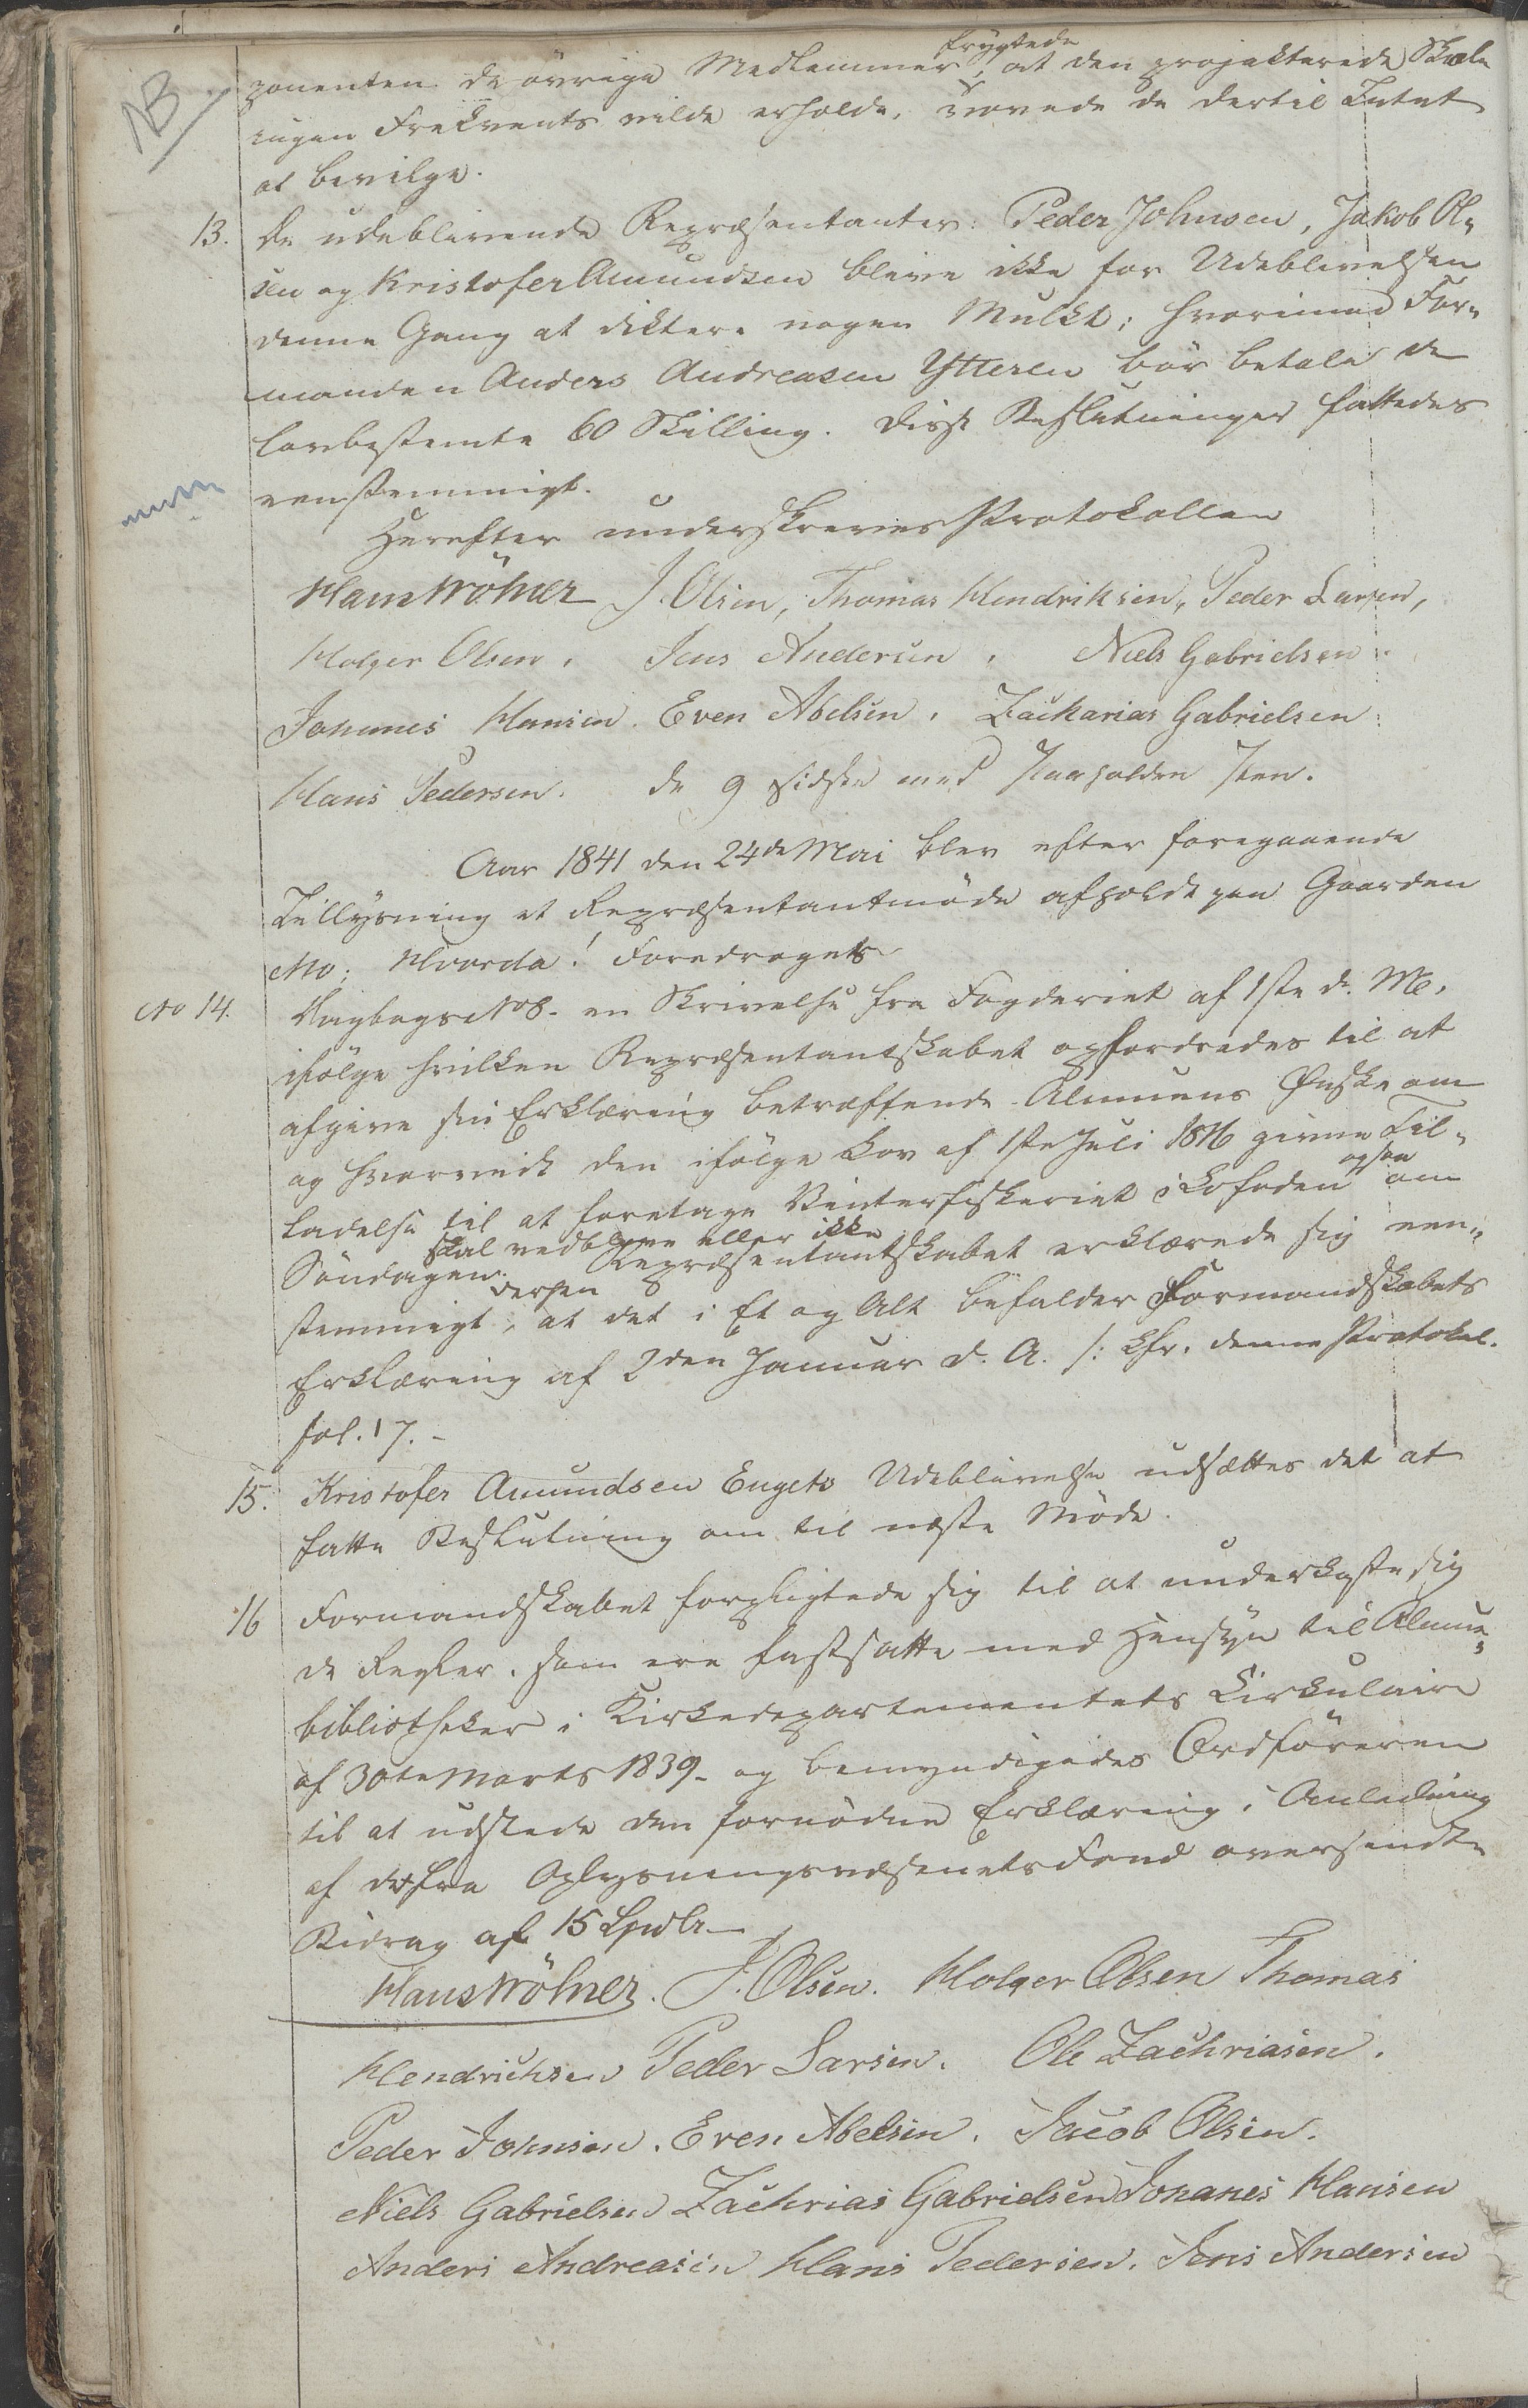 NB
ponenten de øvrige Medlemmer frygtede, at den projekterede Skole
ingen Frekvents vilde erholde, vovede de dertil Intet
at bevilge.
13. De udeblivende Repræsentanter: Peder Johnsen, Jakob Ol-
sen og Kristofer Amundsen blive ikke for Udeblivelsen
denne Gang at diktere nogen Mulkt; hvorimod For-
manden Anders Andreasen Ytteren bör betale de
lovbestemte 60 Skilling. Disse Beslutninger fattedes
eenstemmigt.
Herefter underskreves Protokollen
Hans Wröhner J. Olsen, Thomas Hendriksen, Peder Larsen,
Holger Olsen, Jens Andersen, Niels Gabrielsen.
Johannes Hansen. Even Abelsen, Zackarias Gabrielsen
Hans Pedersen. de 9 sidste med paaholden Pen.
Aar 1841 den 24de Mai blev efter foregaaende
Tillysning et Repræsentantmöde afholdt paa Gaarden
Mo; Hvorda! Foredroges
No 14. Dagbogs No 8. en Skrivelse fra Fogderiet af 1ste d. M.,
ifölge hvilken Repræsentantskabet opfordredes til at
afgive sin Erklæring betræffende Almuens Önske om
og hvorvidt den ifölge Lov af 1ste Juli 1816 givne Til-
ladelse til at foretage Vinterfiskeriet i Lofoden ogsaa om
Söndagen skal vedblive eller ikke. Repræsentantskabet erklærede sig een-
stemmigt derhen, at det i Et og Alt bifalder Formandskabets
Erklæring af 2den Januar d. A. /: cfr. denne Protokol.
fol. 17. -
15. Kristofer Amundsen Engets Udeblivelse udsættes det at
fatte Beslutning om til næste Möde.
16 Formandskabet forpligtede sig til at underkaste sig
de Regler, som ere fastsatte med Hensyn til Almue-
bibliotheker i Kirkedepartementets Cirkulaire
af 30te Marts 1839 - og bemyndigedes Ordföreren
til at udstede den fornödne Erklæring i Anledning
af det fra Oplysningsvæsenets Fond oversendte
Bidrag af 15 Spdlr.
Hans Wröhner. J. Olsen. Holger Olsen Thomas
Hendrichsen Peder Larsen. Ole Zachriasen.
Peder Johnsen. Even Abelsen. Jacob Olsen.
Niels Gabrielsen Zachrias Gabrielsen Johanes Hansen
Anders Andreasen Hans Pedersen. Jens Andersen